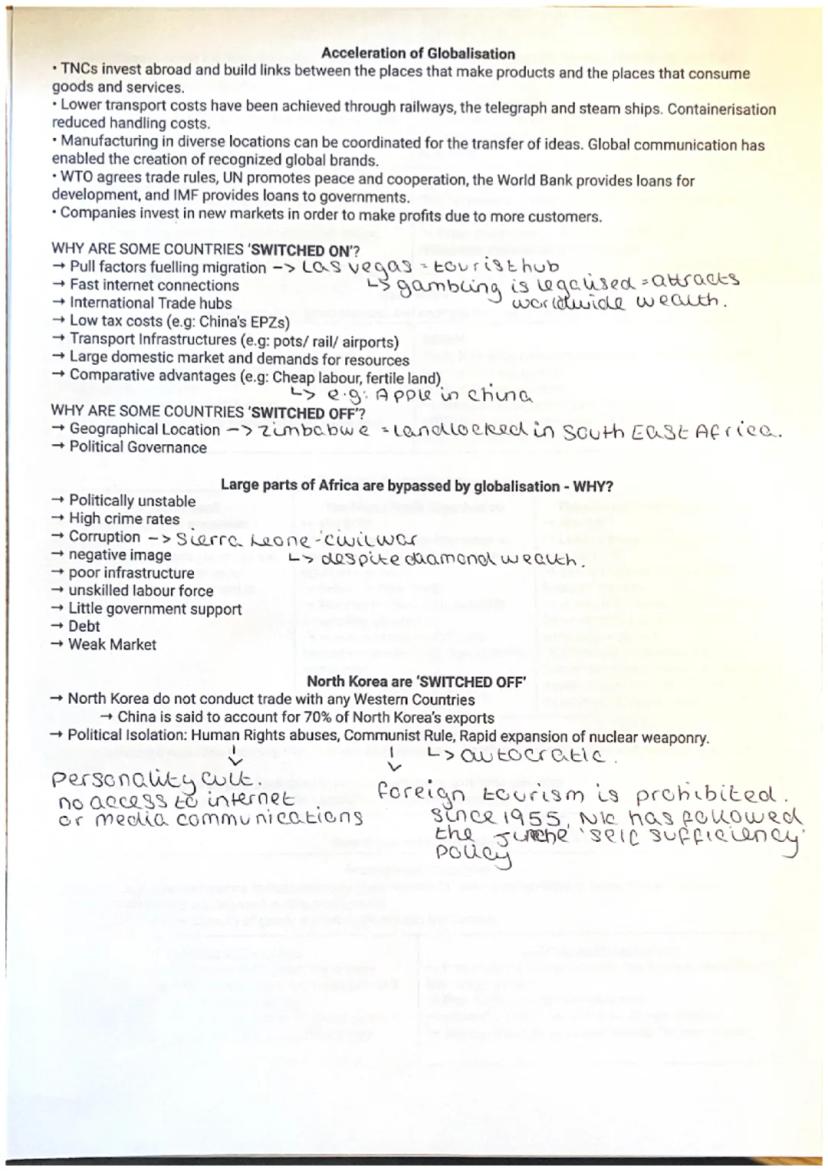 Acceleration of Globalisation
• TNCs invest abroad and build links between the places that make products and the places that consume
goods and services.
• Lower transport costs have been achieved through railways, the telegraph and steam ships. Containerisation
reduced handling costs.
• Manufacturing in diverse locations can be coordinated for the transfer of ideas. Global communication has
enabled the creation of recognized global brands.
• WTO agrees trade rules, UN promotes peace and cooperation, the World Bank provides loans for
development, and IMF provides loans to governments.
• Companies invest in new markets in order to make profits due to more customers.
WHY ARE SOME COUNTRIES 'SWITCHED ON'?
→ Pull factors fuelling migration -> Las vegas = tourist hub
→ Fast internet connections ↳ gambling is legalised = attracts
→ International Trade hubs worldwide wealth.
→ Low tax costs (e.g: China's EPZs)
→ Transport Infrastructures (e.g: pots/ rail/ airports)
→ Large domestic market and demands for resources
→ Comparative advantages (e.g: Cheap labour, fertile land)
↳ e.g: Apple in China
WHY ARE SOME COUNTRIES 'SWITCHED OFF'?
→ Geographical Location -> Zimbabwe = landlocked in South East Africa.
→ Political Governance
Large parts of Africa are bypassed by globalisation - WHY?
→ Politically unstable
→ High crime rates
→ Corruption -> Sierra Leone - civil war
→ negative image ↳ despite diamond wealth.
→ poor infrastructure
→ unskilled labour force
→ Little government support
→ Debt
→ Weak Market
North Korea are 'SWITCHED OFF'
→ North Korea do not conduct trade with any Western Countries
→ China is said to account for 70% of North Korea's exports
→ Political Isolation: Human Rights abuses, Communist Rule, Rapid expansion of nuclear weaponry.
↳ autocratic.
Personality cult.
no access to internet
or media communications
foreign tourism is prohibited.
since 1955, NK has followed
the Juche 'self sufficiency'
policy